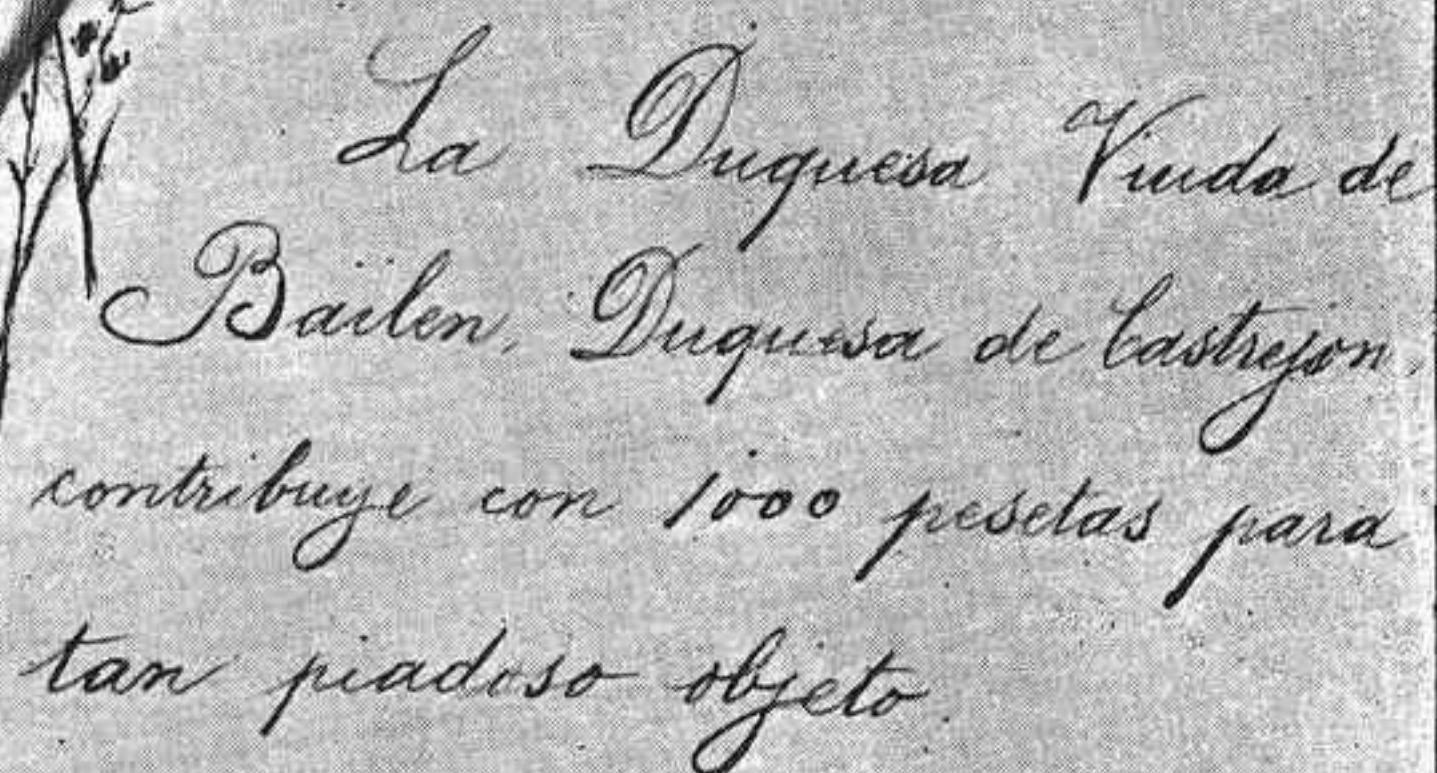 La Duquesa Viuda de
Bailen, Duquesa de Castrejon,
contribuye con 1000 pesetas para
tan piadoso objeto.